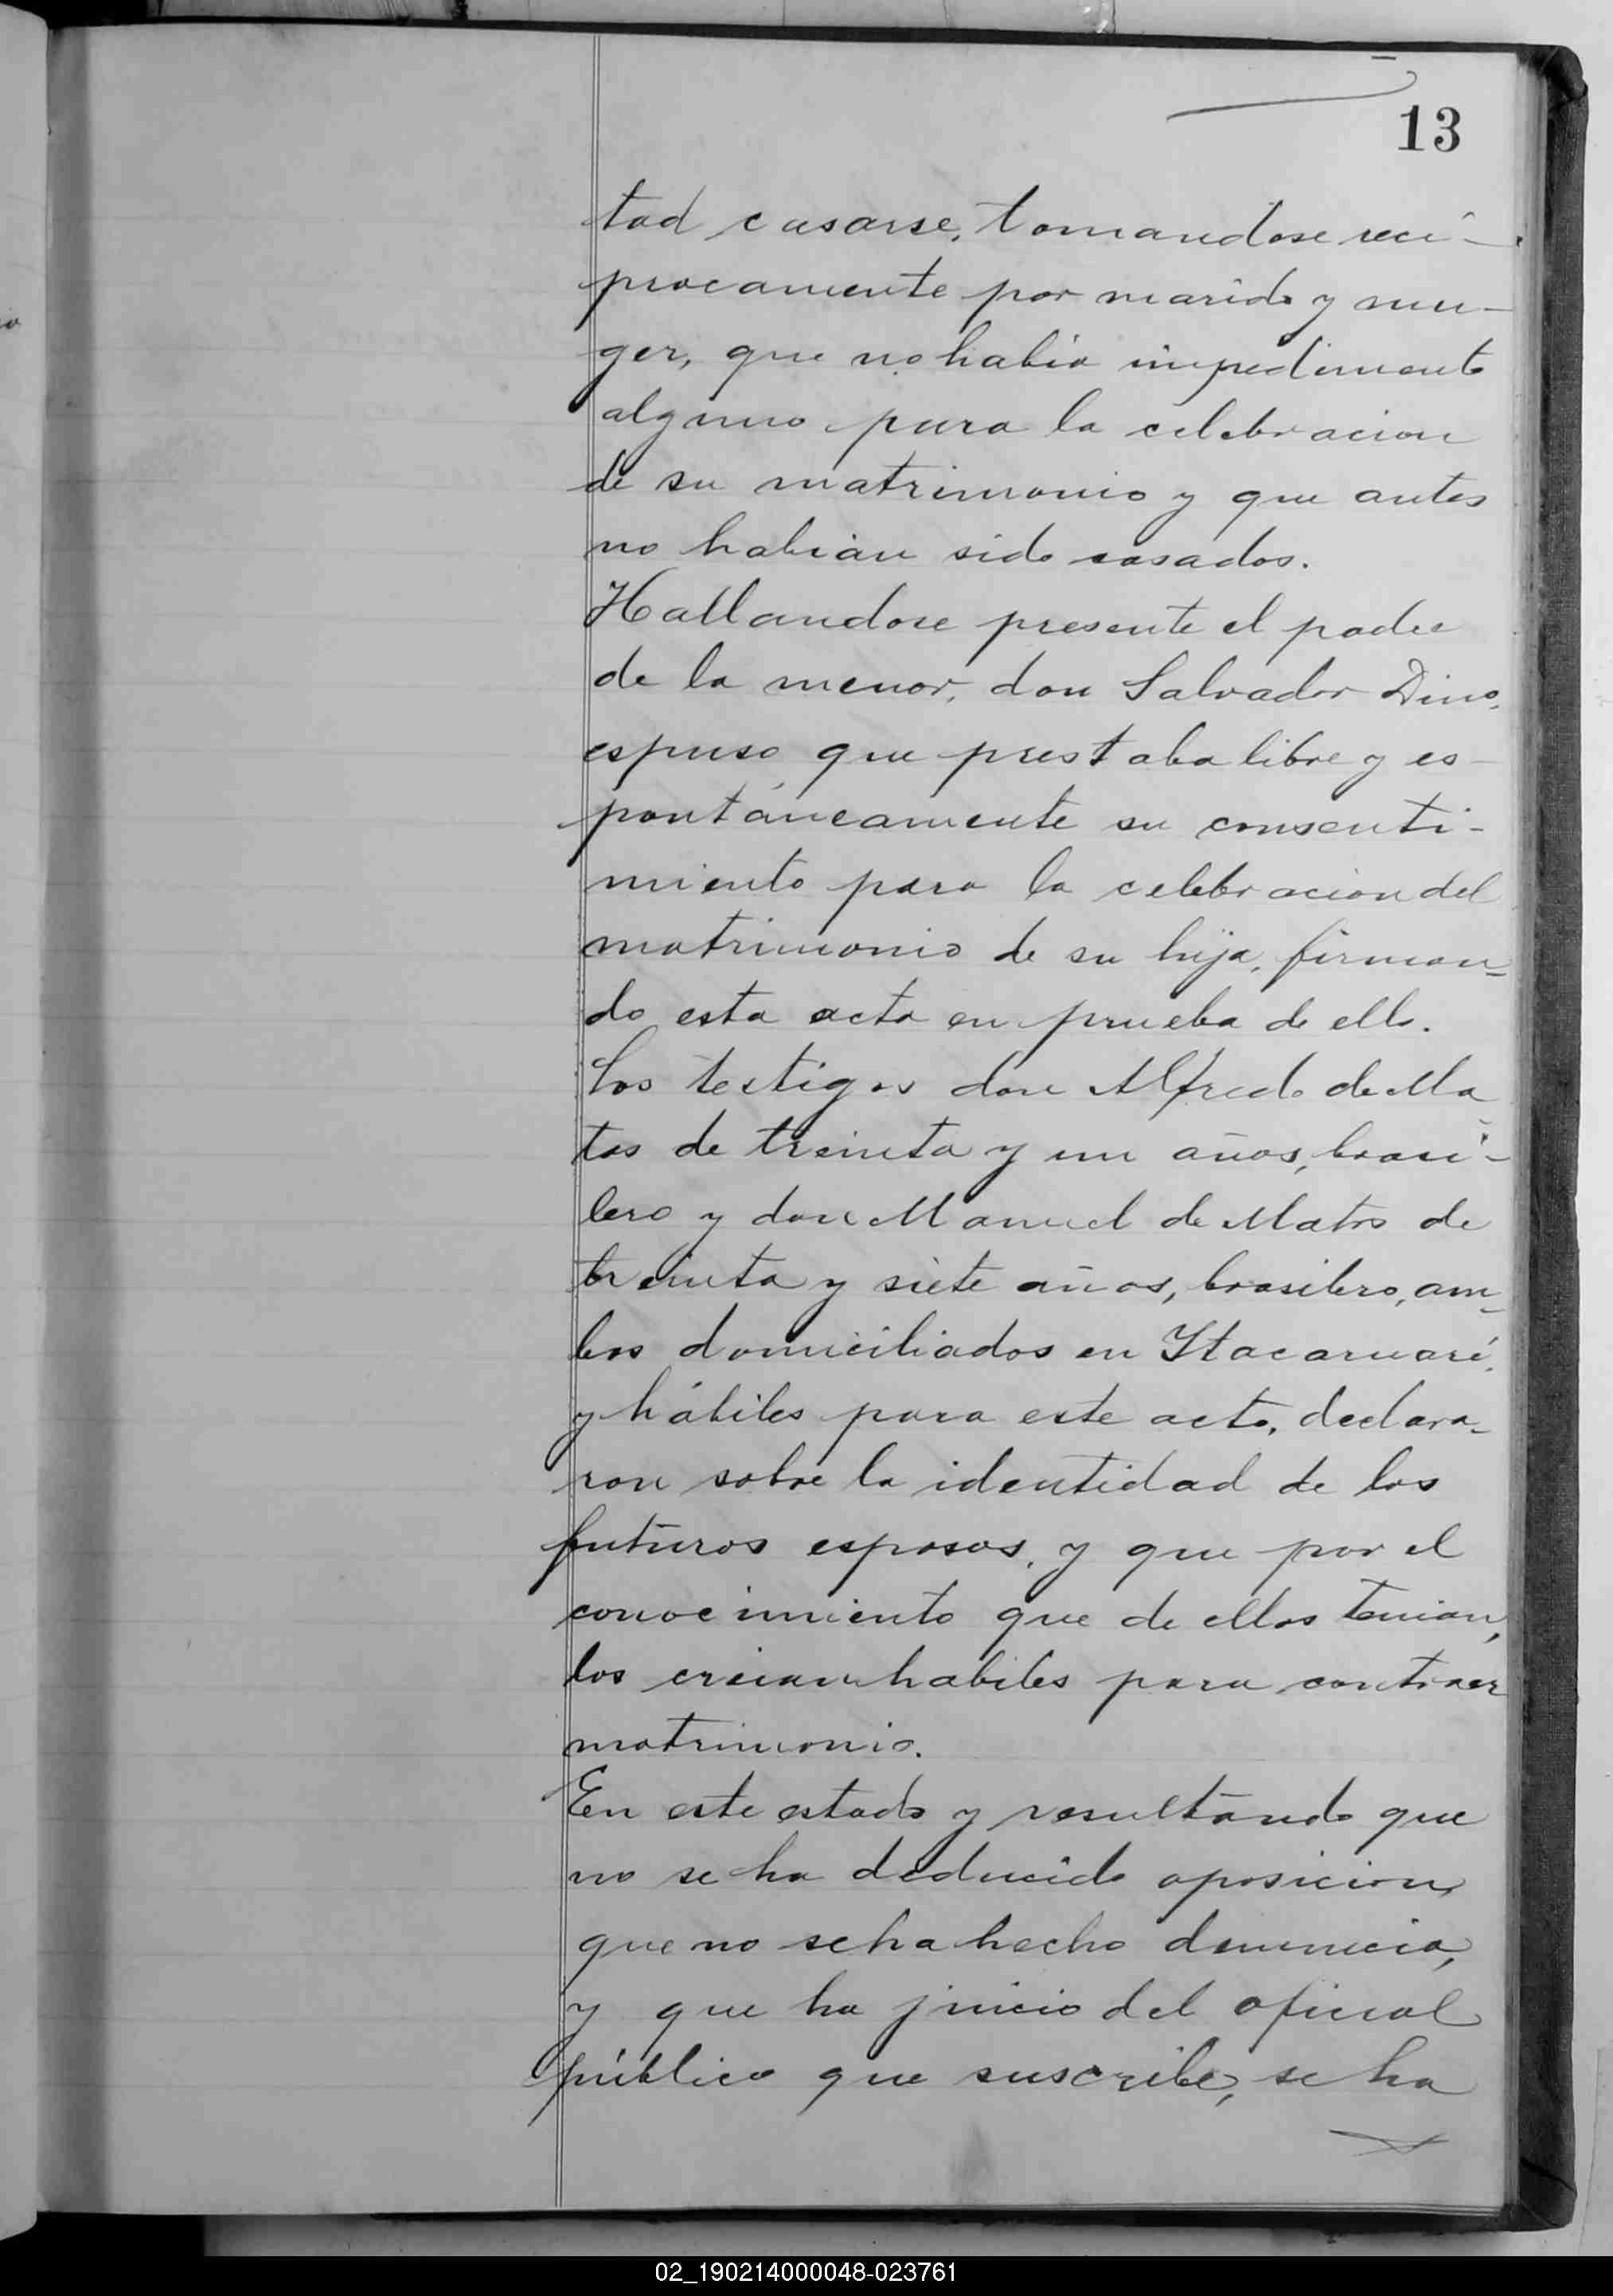 13
tad casarse, tomandose reci-
procamente por marido y mu-
ger, que no habia impedimento
alguno para la celebracion
de su matrimonio y que antes
no habian sido casados.
Hallandose presente el padre
de la menor, don Salvador Dino,
espuso que prestaba libre y es-
pontáneamente su consenti-
miento para la celebracion del
matrimonio de su hija, firman-
do esta acta en prueba de ello.
Los testigos don Alfredo de Ma-
tos de treinta y un años, brasi-
lero y don Manuel de Matos de
treinta y siete años, brasilero, am-
bos domiciliados en Itacaruaré,
y hábiles para este acto, declara-
ron sobre la identidad de los
futuros esposos, y que por el
conocimiento que de ellos tenian,
los creian habiles para contraer
matrimonio.
En este estado y resultando que
no se ha deducido oposicion,
que no se ha hecho denuncia,
y que ha juicio del oficial
público que suscribe, se ha
02_190214000048-023761